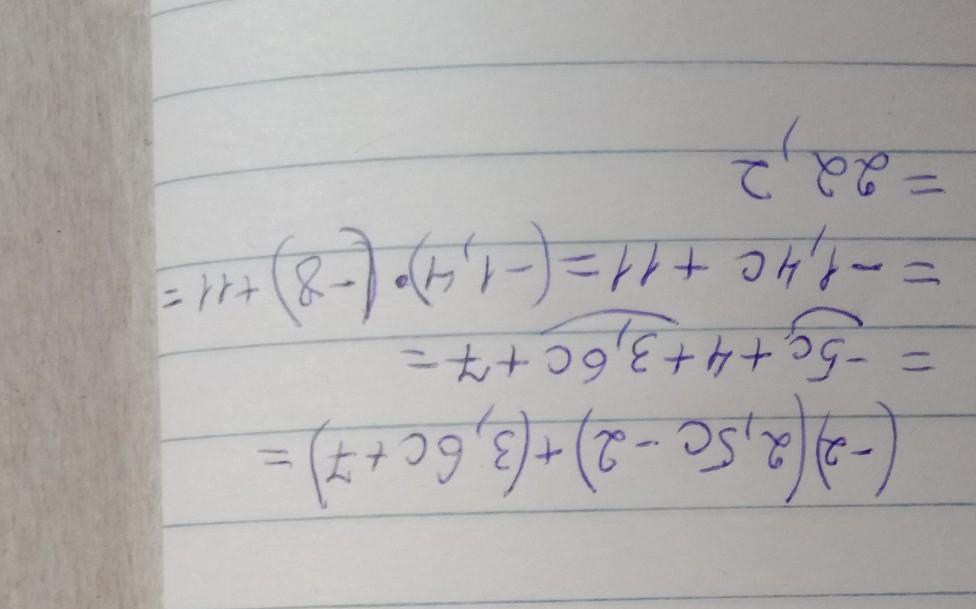 (-2)(2,5c - 2) + (3,6c + 7) =
= -5c + 4 + 3,6c + 7 =
= -1,4c + 11 = (-1,4) · (-8) + 11 =
= 22,2